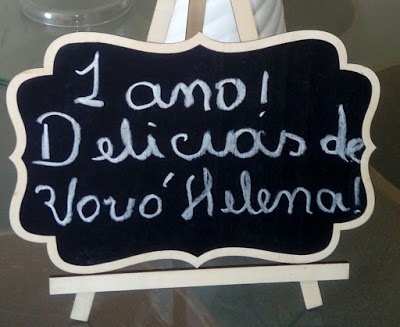 1 ano!
Deliciás de
Vovó Helena!